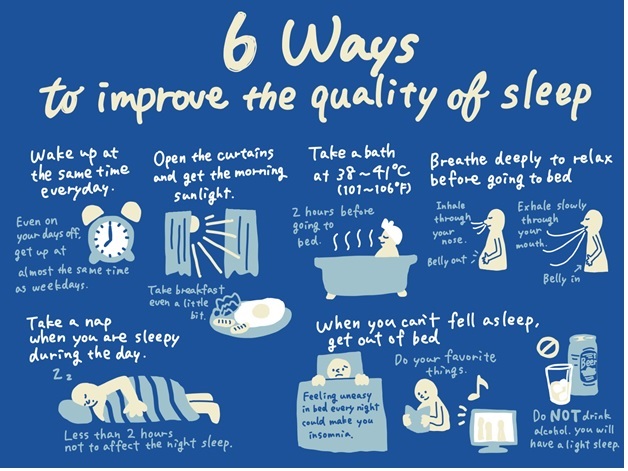 6 Ways
to improve the quality of sleep
Wake up at
the same time
everyday.
Even on
your days off,
get up at
almost the same time
as weekdays.
Open the curtains
and get the morning
sunlight.
Take breakfast
even a little
bit.
Take a bath
at 38~41°C
(101~106°F)
2 hours before
going to
bed.
Breathe deeply to relax
before going to bed
Inhale
through
your
nose.
Belly out
Exhale slowly
through
your
mouth.
Belly in
Take a nap
when you are sleepy
during the day.
Z z
Less than 2 hours
not to affect the night sleep.
When you can't fell asleep,
get out of bed
Feeling uneasy
in bed every night
could make you
insomnia.
Do your favorite
things.
Beer
Do NOT drink
alcohol. you will
have a light sleep.